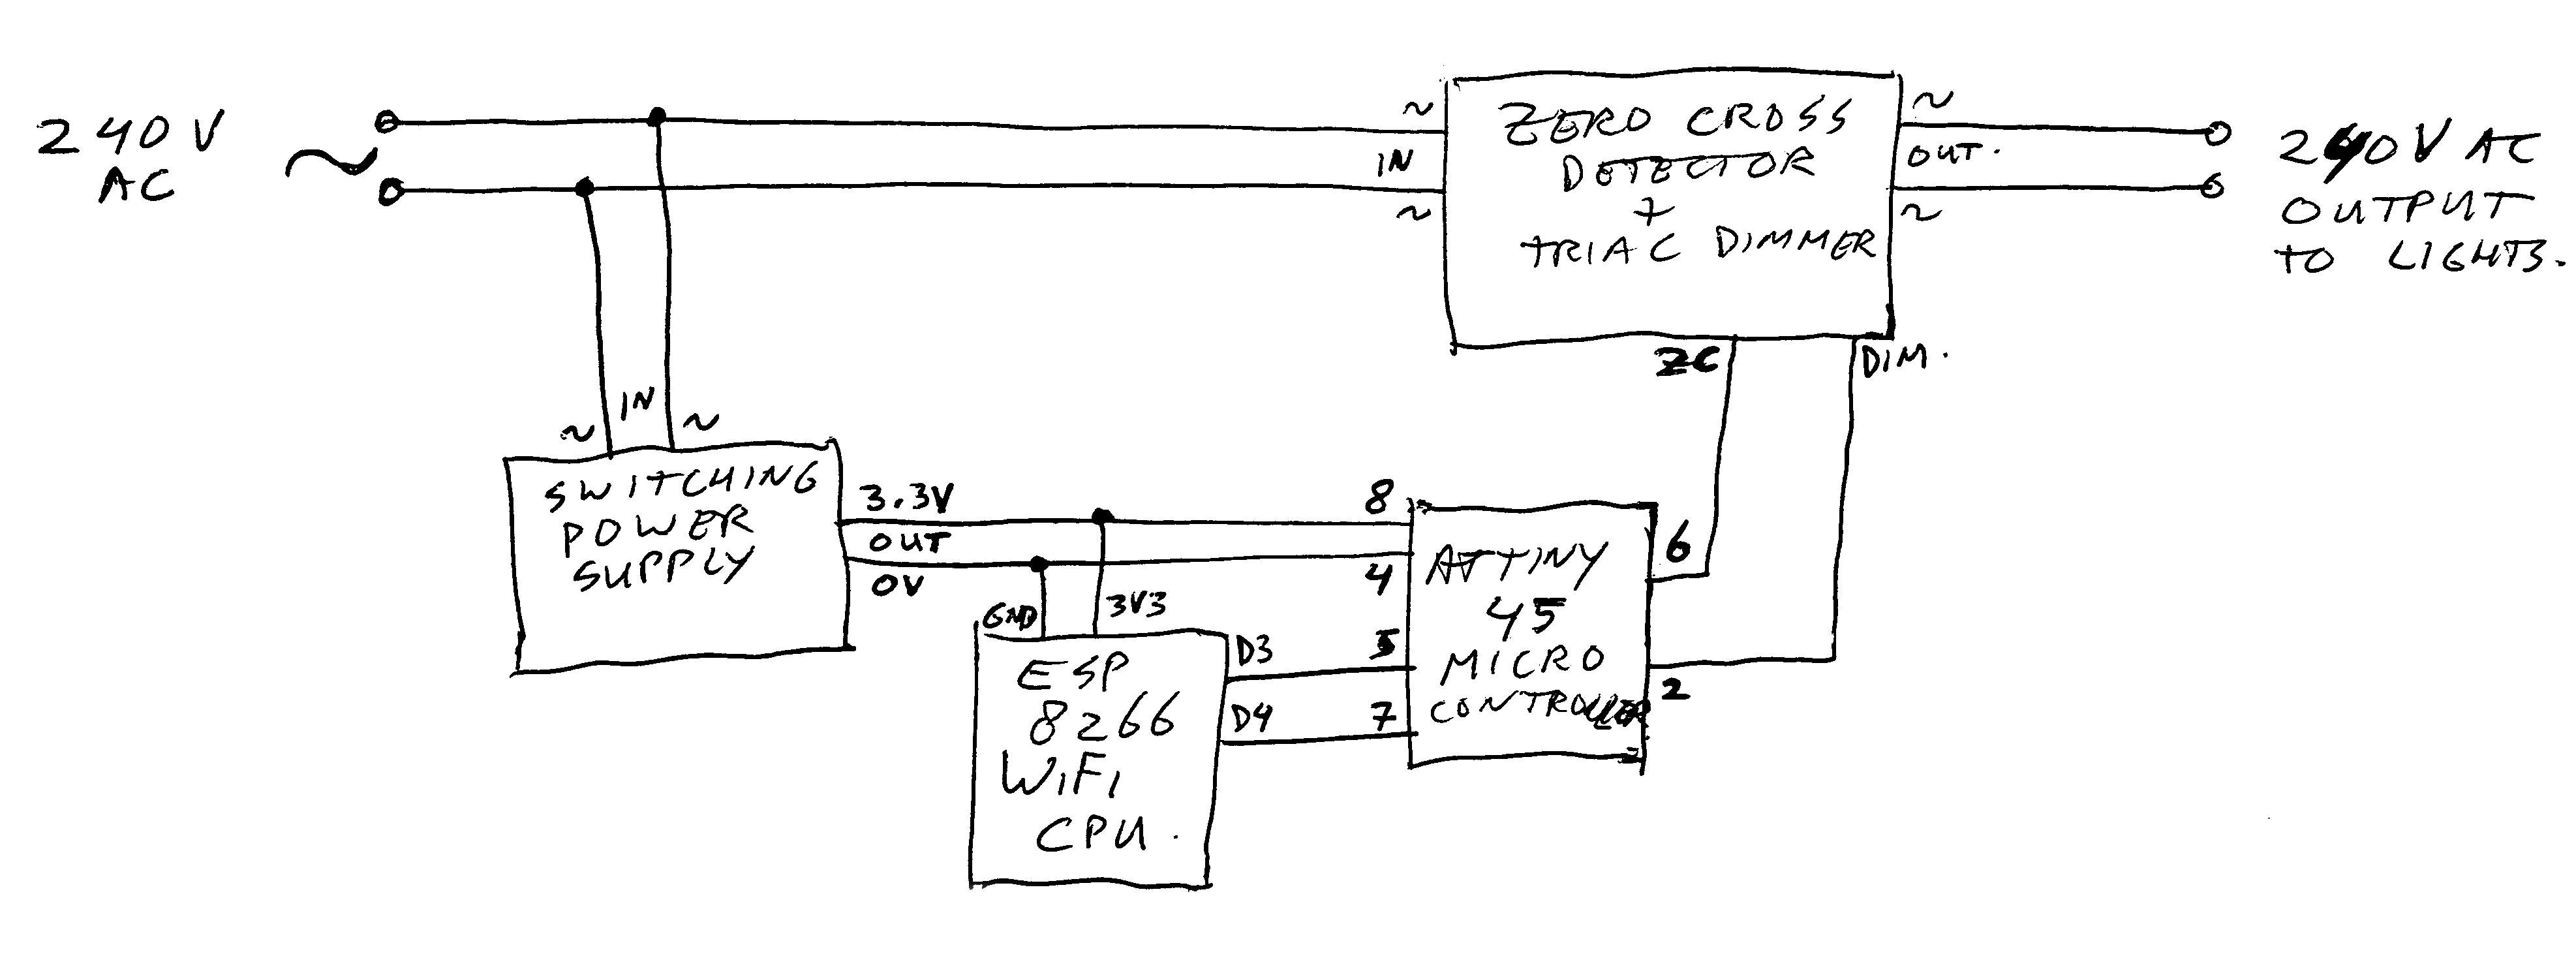 240V
AC
~
~
IN
~
ZERO CROSS
DETECTOR
+
TRIAC DIMMER
~
OUT.
~
240V AC
OUTPUT
TO LIGHTS.
ZC
DIM.
IN
~ ~
SWITCHING
POWER
SUPPLY
3.3V
OUT
0V
GND
3V3
ESP
8266
WiFi
CPU.
D3
D4
8
4
5
7
ATTINY
45
MICRO
CONTROLLER
6
2